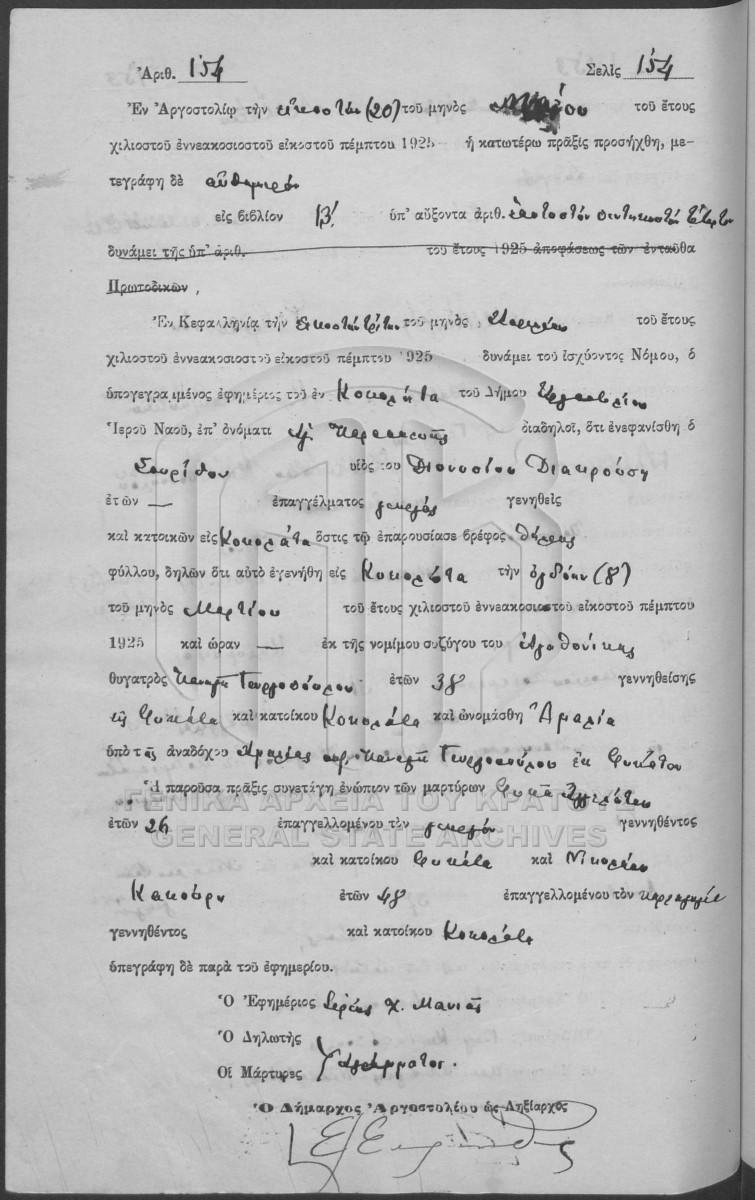 Ἀριθ. 154 Σελὶς 154
Ἐν Ἀργοστολίῳ τὴν εἰκοστὴν (20) τοῦ μηνὸς Μαΐου τοῦ ἔτους
χιλιοστοῦ ἐννεακοσιοστοῦ εἰκοστοῦ πέμπτου 1925 ἡ κατωτέρω πρᾶξις προσήχθη, με-
τεγράφη δὲ αὐθημερόν
εἰς βιβλίον Β′. ὑπ' αὔξοντα ἀριθ. ἑκατοστὸν πεντηκοστὸν τέταρτον
δυνάμει τῆς ὑπ' ἀριθ. τοῦ ἔτους 1925 ἀποφάσεως τῶν ἐνταῦθα
Πρωτοδικῶν,
Ἐν Κεφαλληνίᾳ τὴν εἰκοστὴν τρίτην τοῦ μηνὸς Ἀπριλίου τοῦ ἔτους
χιλιοστοῦ ἐννεακοσιοστοῦ εἰκοστοῦ πέμπτου 1925 δυνάμει τοῦ ἰσχύοντος Νόμου, ὁ
ὑπογεγραμμένος ἐφημέριος τοῦ ἐν Κοκολάτα τοῦ Δήμου Ἀργοστολίου
Ἱεροῦ Ναοῦ, ἐπ' ὀνόματι Ἁγ. Παρασκευῆς διαδηλοῖ, ὅτι ἐνεφανίσθη ὁ
Σπυρίδων υἱὸς του Διονυσίου Διακρούση
ἐτῶν — ἐπαγγέλματος γεωργός γενηθεὶς
καὶ κατοικῶν εἰς Κοκολάτα ὅστις τῷ ἐπαρουσίασε βρέφος θήλεος
φύλλου, δηλῶν ὅτι αὐτὸ ἐγενήθη εἰς Κοκολάτα τὴν ὀγδόην (8)
τοῦ μηνὸς Μαρτίου τοῦ ἔτους χιλιοστοῦ ἐννεακοσιοστοῦ εἰκοστοῦ πέμπτου
1925 καὶ ὥραν — ἐκ τῆς νομίμου συζύγου του Ἀγαθονίκης
θυγατρὸς Παναγῆ Γεωργοπούλου ἐτῶν 38 γεννηθείσης
εἰς Φωκάτα καὶ κατοίκου Κοκολάτα καὶ ὠνομάσθη Ἀμαλία
ὑπὸ τῆς ἀναδόχου Ἀμαλίας συζ. Παναγῆ Γεωργοπούλου ἐκ Φωκάτων
Ἡ παροῦσα πρᾶξις συνετάγη ἐνώπιον τῶν μαρτύρων Φωκᾶ
ἐτῶν 26 ἐπαγγελλομένου τὸν γεωργόν γεννηθέντος
καὶ κατοίκου Φωκάτα καὶ Νικολάου
Κακούρη ἐτῶν 48 ἐπαγγελλομένου τὸν
γεννηθέντος καὶ κατοίκου Κοκολάτα
ὑπεγράφη δὲ παρὰ τοῦ ἐφημερίου.
Ὁ Ἐφημέριος
Ὁ Δηλωτὴς
Οἱ Μάρτυρες Ἀγράμματοι.
Ὁ Δήμαρχος Ἀργοστολίου ὡς Ληξίαρχος
ΓΕΝΙΚΑ ΑΡΧΕΙΑ ΤΟΥ ΚΡΑΤΟΥΣ
GENERAL STATE ARCHIVES